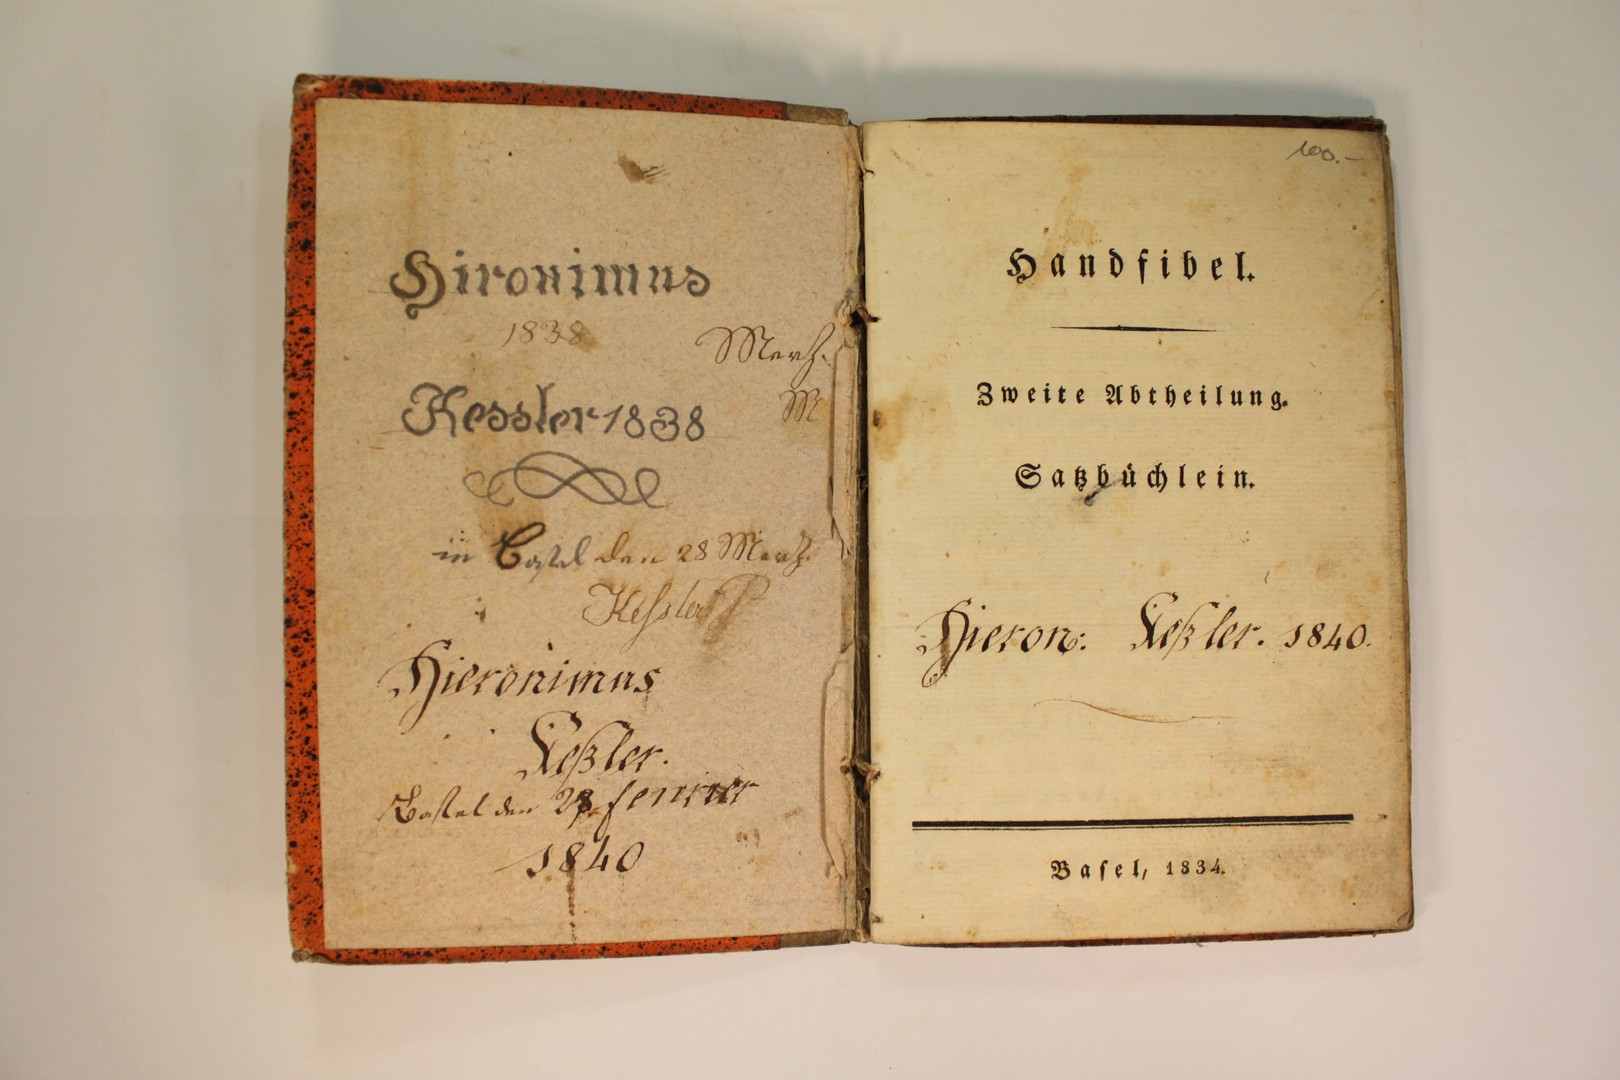 Hironimus
1838
Merz.
Kessler 1838
M
in Basel den 28 Merz.
Kessler
Hieronimus
Keßler.
Basel den 28
1840
100.–
Handfibel.
Zweite Abtheilung.
Satzbüchlein.
Hieron: Keßler. 1840.
Basel, 1834.